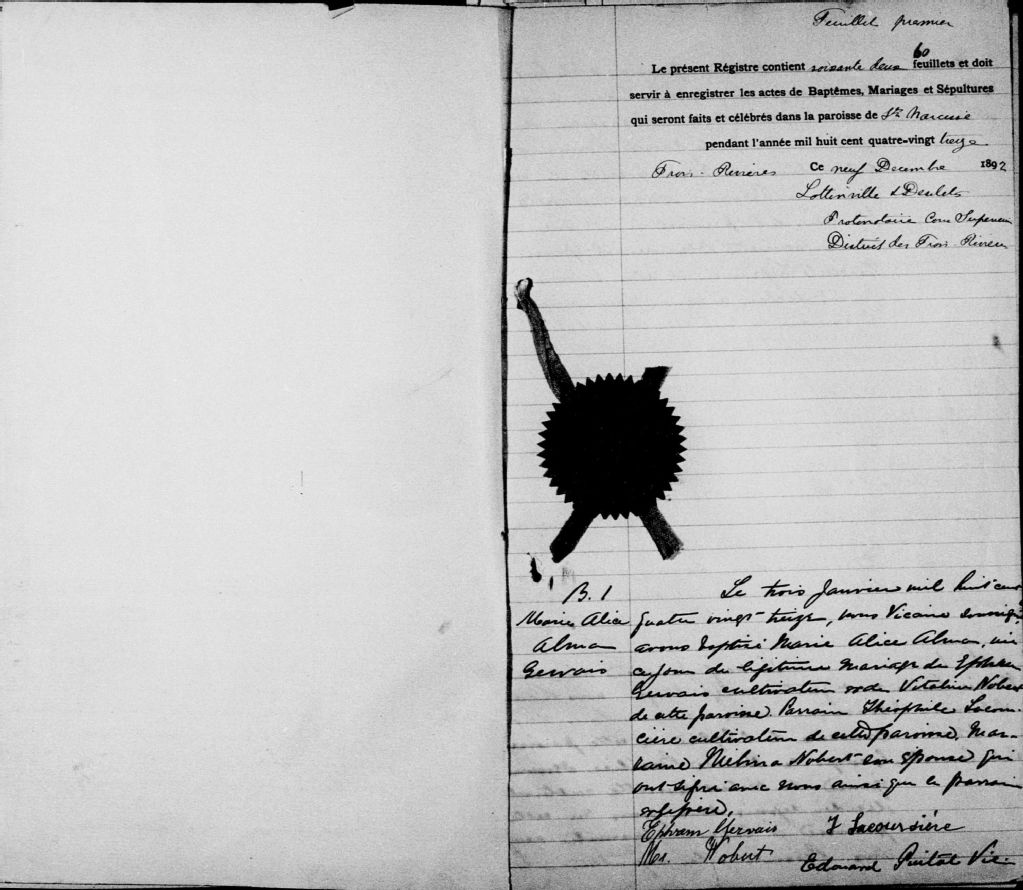 Feuillet premier
60
Le présent Régistre contient soixante deux feuillets et doit
servir à enregistrer les actes de Baptêmes, Mariages et Sépultures
qui seront faits et célébrés dans la paroisse de St Narcisse
pendant l'année mil huit cent quatre-vingt treize
Trois-Rivières Ce neuf Decembre 1892
Lottinville & Desilets
Protonotaire Cour Superieure
District des Trois-Rivières
B. 1
Marie Alice
Alma
Gervais
Le trois Janvier mil huit cent
quatre vingt treize, nous Vicaire soussigné
avons baptisé Marie Alice Alma, née
ce jour du légitime mariage de Ephrem
Gervais cultivateur et de Vitaline Nobert
de cette paroisse. Parrain Théophile Lacour-
cière cultivateur de cette paroisse, Mar-
raine Melina Nobert son épouse qui
ont signé avec nous ainsi que le parrain
et le père.
Ephram Gervais T Lacoursière
Nobert
Edouard Vic.